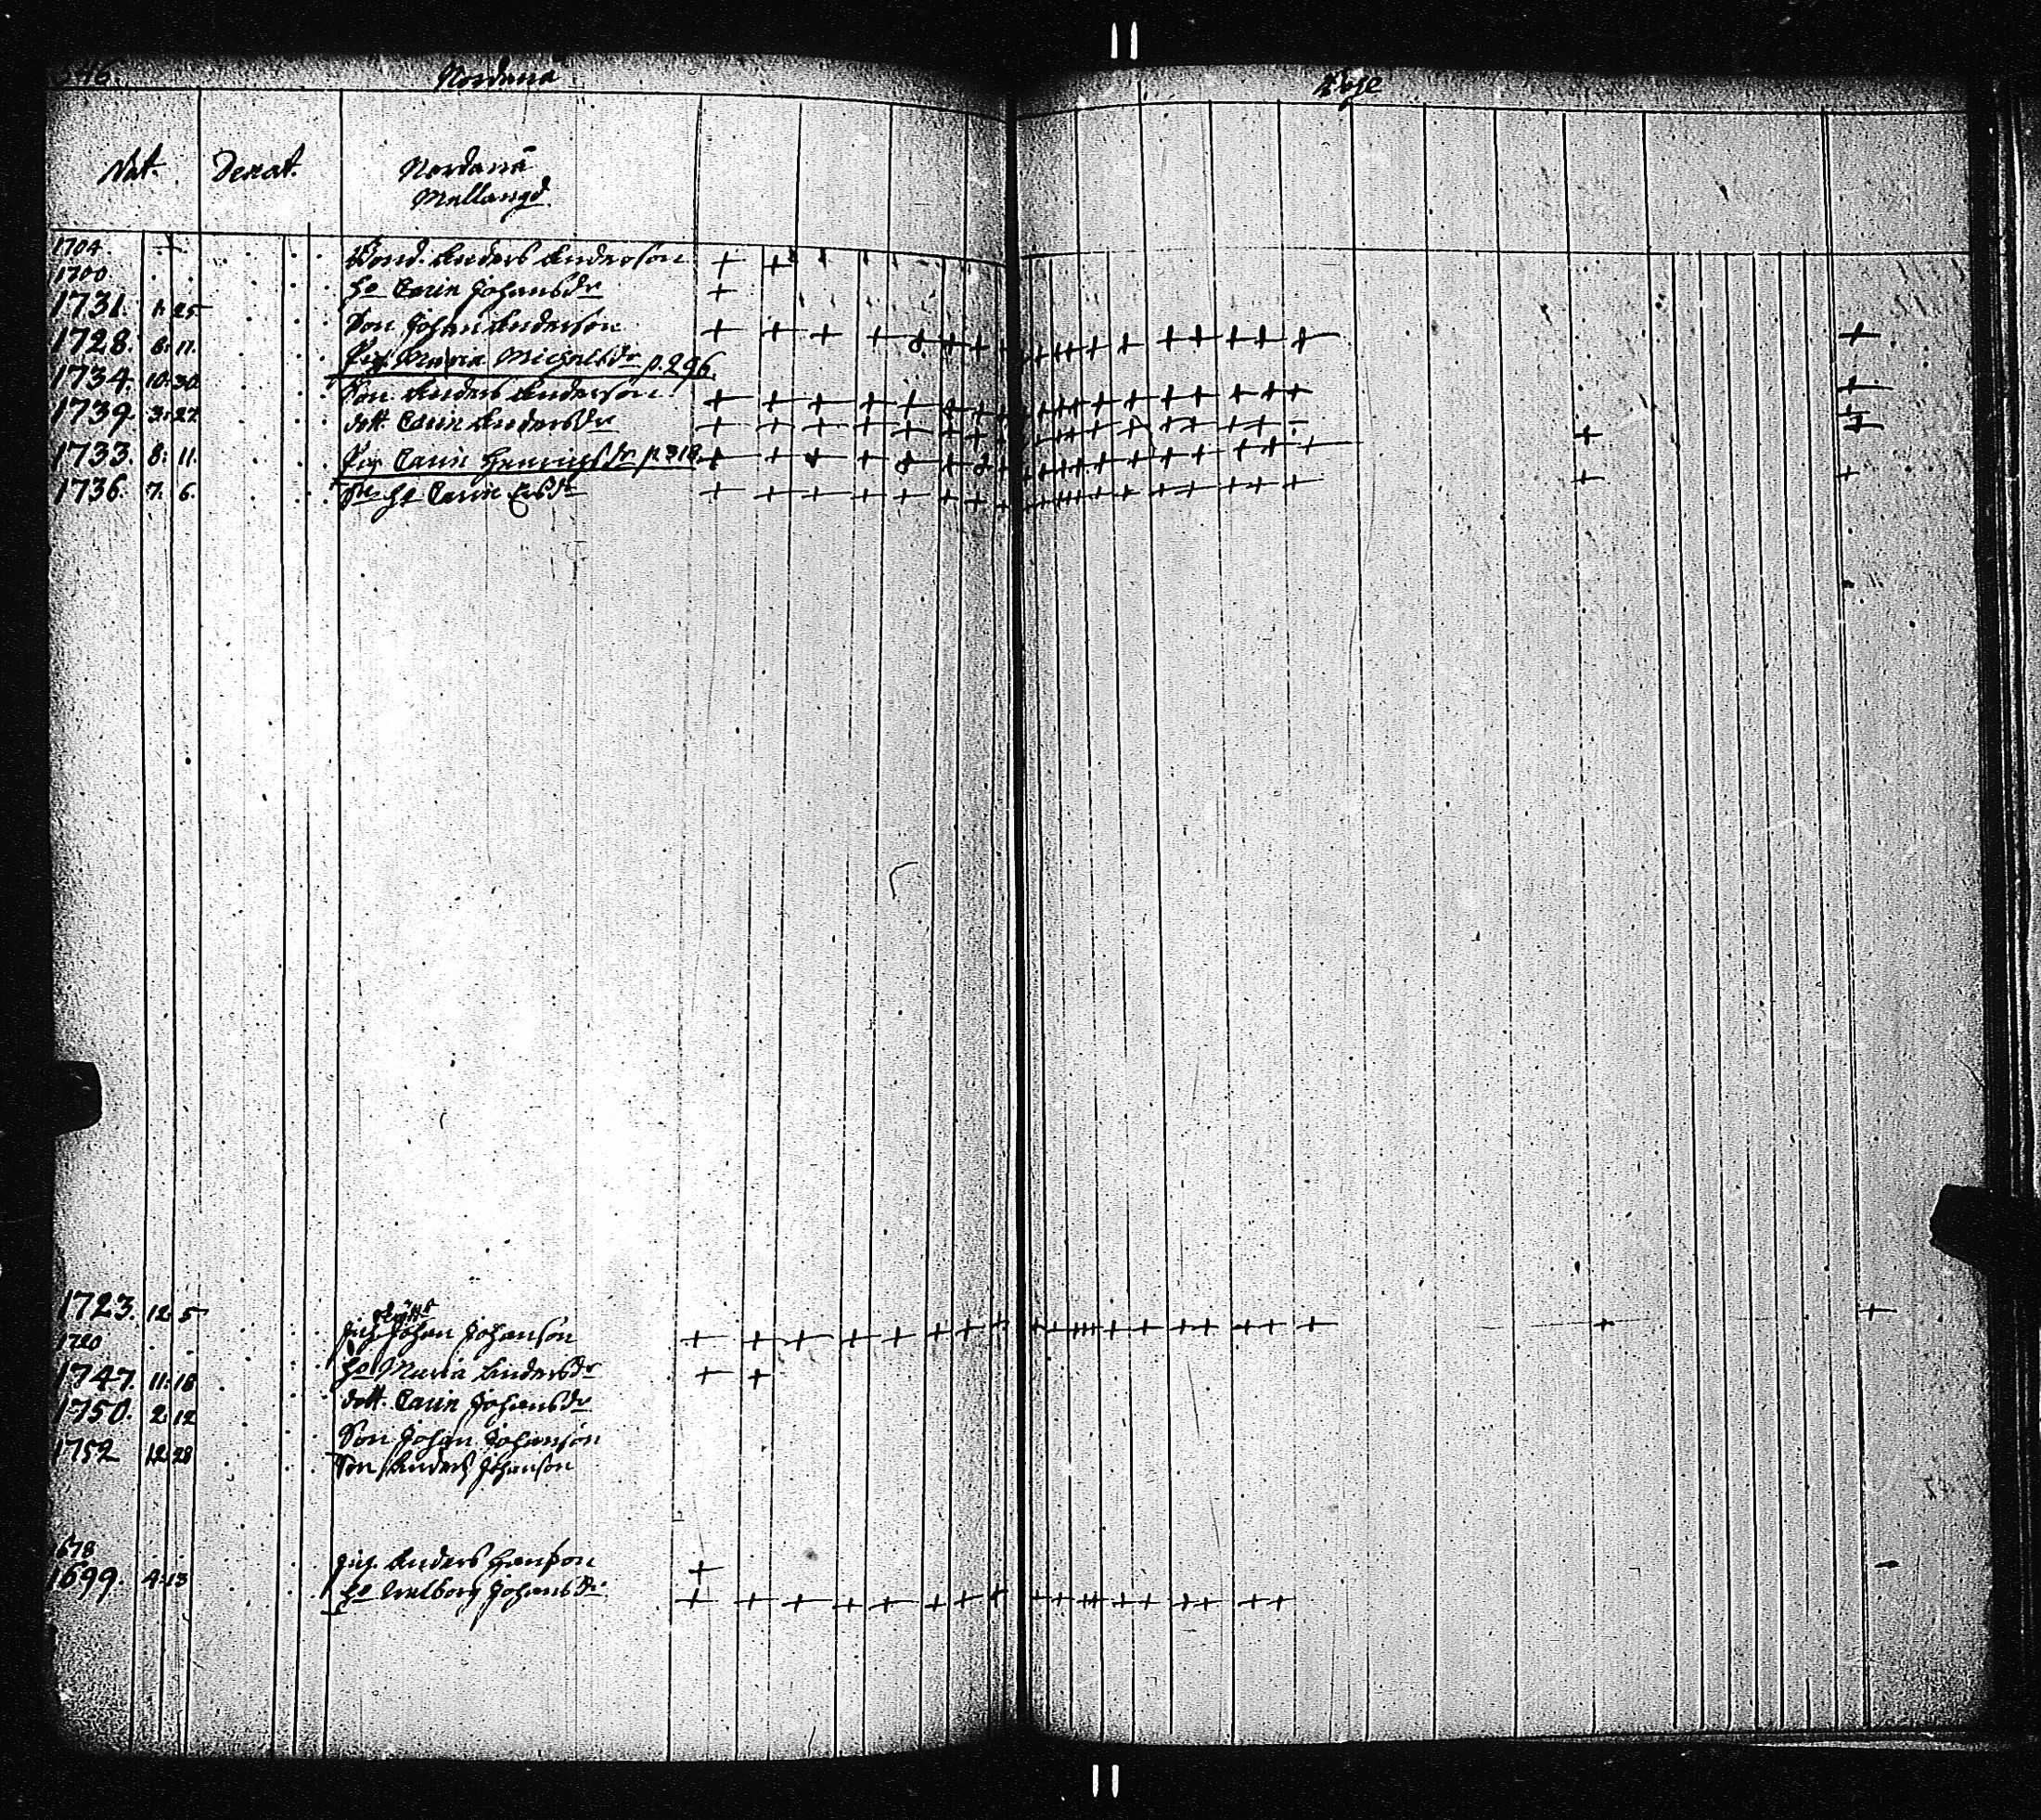 Nordanå
Nat. Denat. Nordanå
Mellangd.
1704. Bond. Anders Anderson
1700 ho Carin Johansdr
1731. 1. 25 Son Johan Anderson
1728. 6. 11. Pig. Maria Michelsdr p. 296.
1734. 10. 30 Son Anders Anderson
1739. 3. 27 dott. Carin Andersdr
1733. 8. 11. Pig Carin Henricsdr p. 318.
1736. 7. 6. ho Carin Ersdr
1723. 12. 5 Johan Johanson
1720 ho Maria Andersdr
1747. 11. 18 dott. Carin Johansdr
1750. 2. 12 Son Johan Johanson
1752 12 28 Son Anders Johanson
1678 Anders Hanson
1699. 4. 13 ho Walborg Johansdr